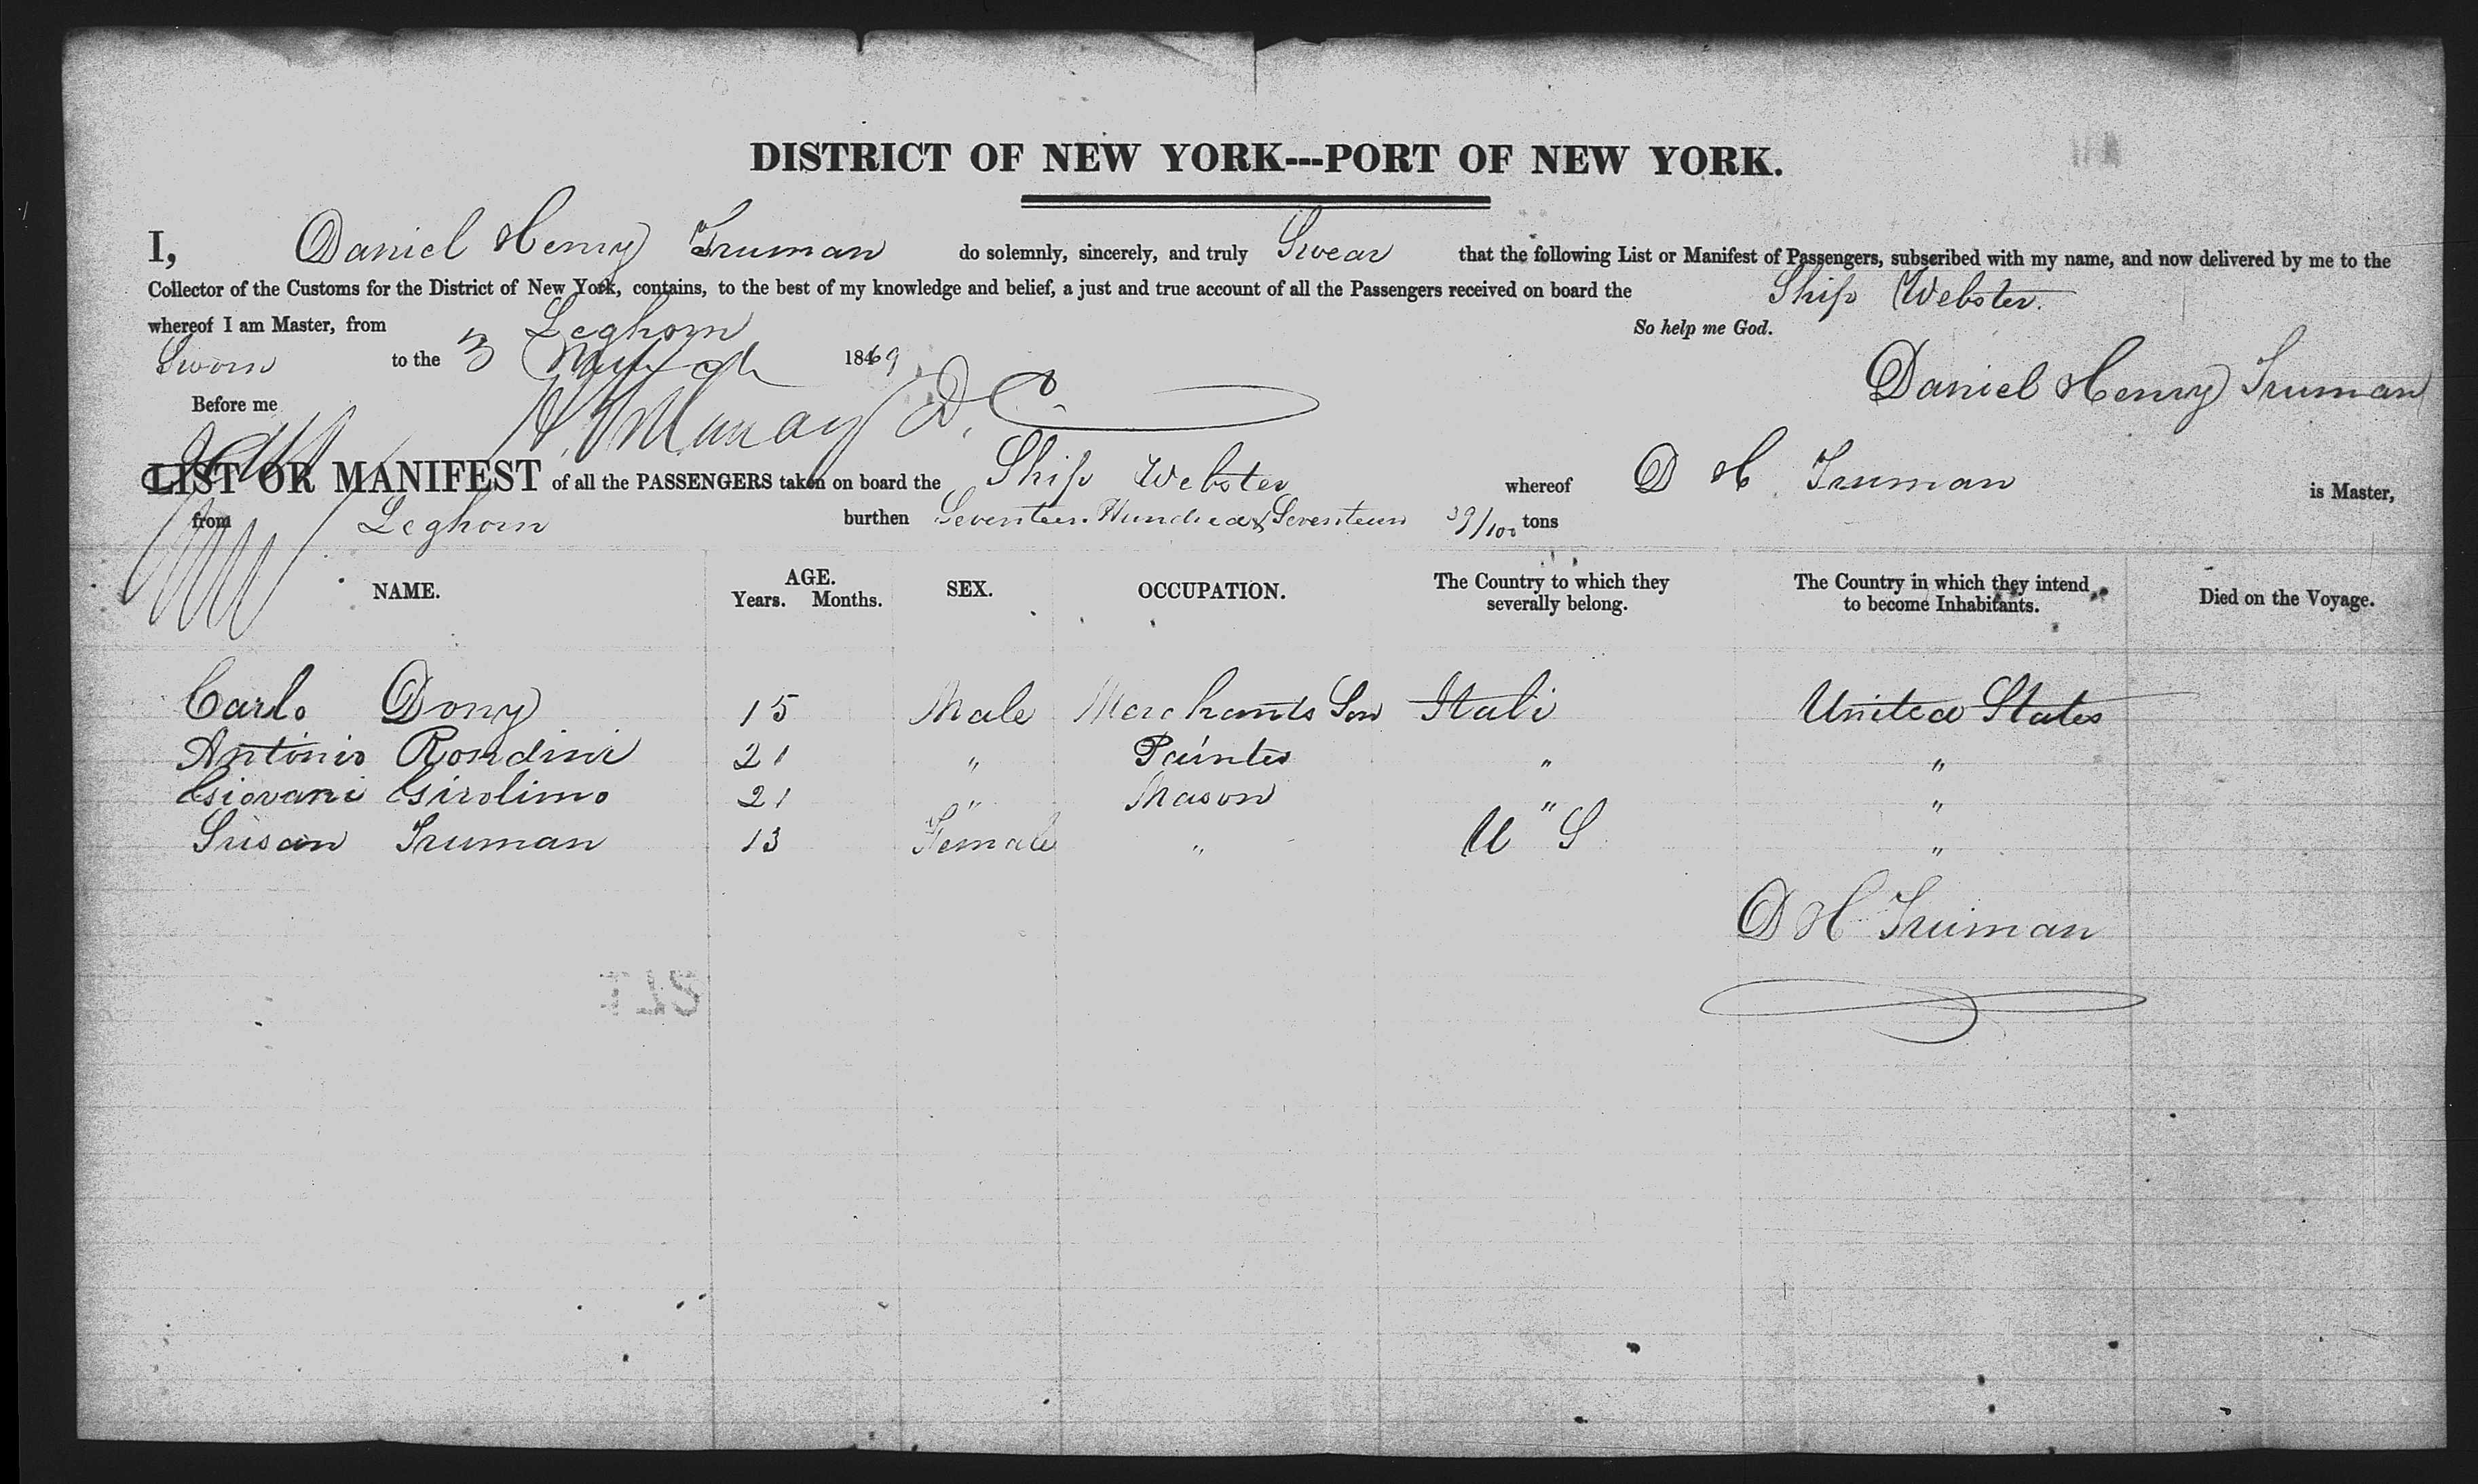 DISTRICT OF NEW YORK---PORT OF NEW YORK.
I, Daniel Henry Truman do solemnly, sincerely, and truly Swear that the following List or Manifest of Passengers, subscribed with my name, and now delivered by me to the
Collector of the Customs for the District of New York, contains, to the best of my knowledge and belief, a just and true account of all the Passengers received on board the Ship Webster.
whereof I am Master, from Leghorn So help me God.
Sworn to the 3 1869
Daniel Henry Truman
Before me
Murray D. C.
LIST OR MANIFEST of all the PASSENGERS taken on board the Ship Webster whereof D H Truman is Master,
from Leghorn burthen Seventeen Hundred & Seventeen 39/100 tons
NAME. AGE. Years. Months. SEX. OCCUPATION. The Country to which they severally belong. The Country in which they intend to become Inhabitants. Died on the Voyage.
Carlo Dony 15 Male Merchants Son Itali United States
Antonio Rondini 21 " Painter " "
Giovani Girolimo 21 " Mason " "
Susan Truman 13 Female " U S "
D H Truman